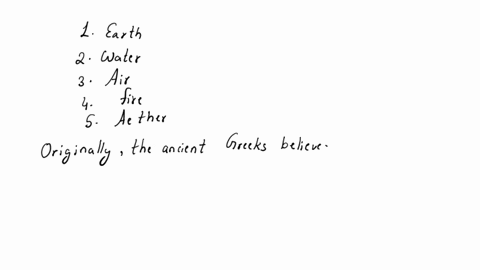 1. Earth
2. Water
3. Air
4. fire
5. Aether
Originally, the ancient Greeks believe.